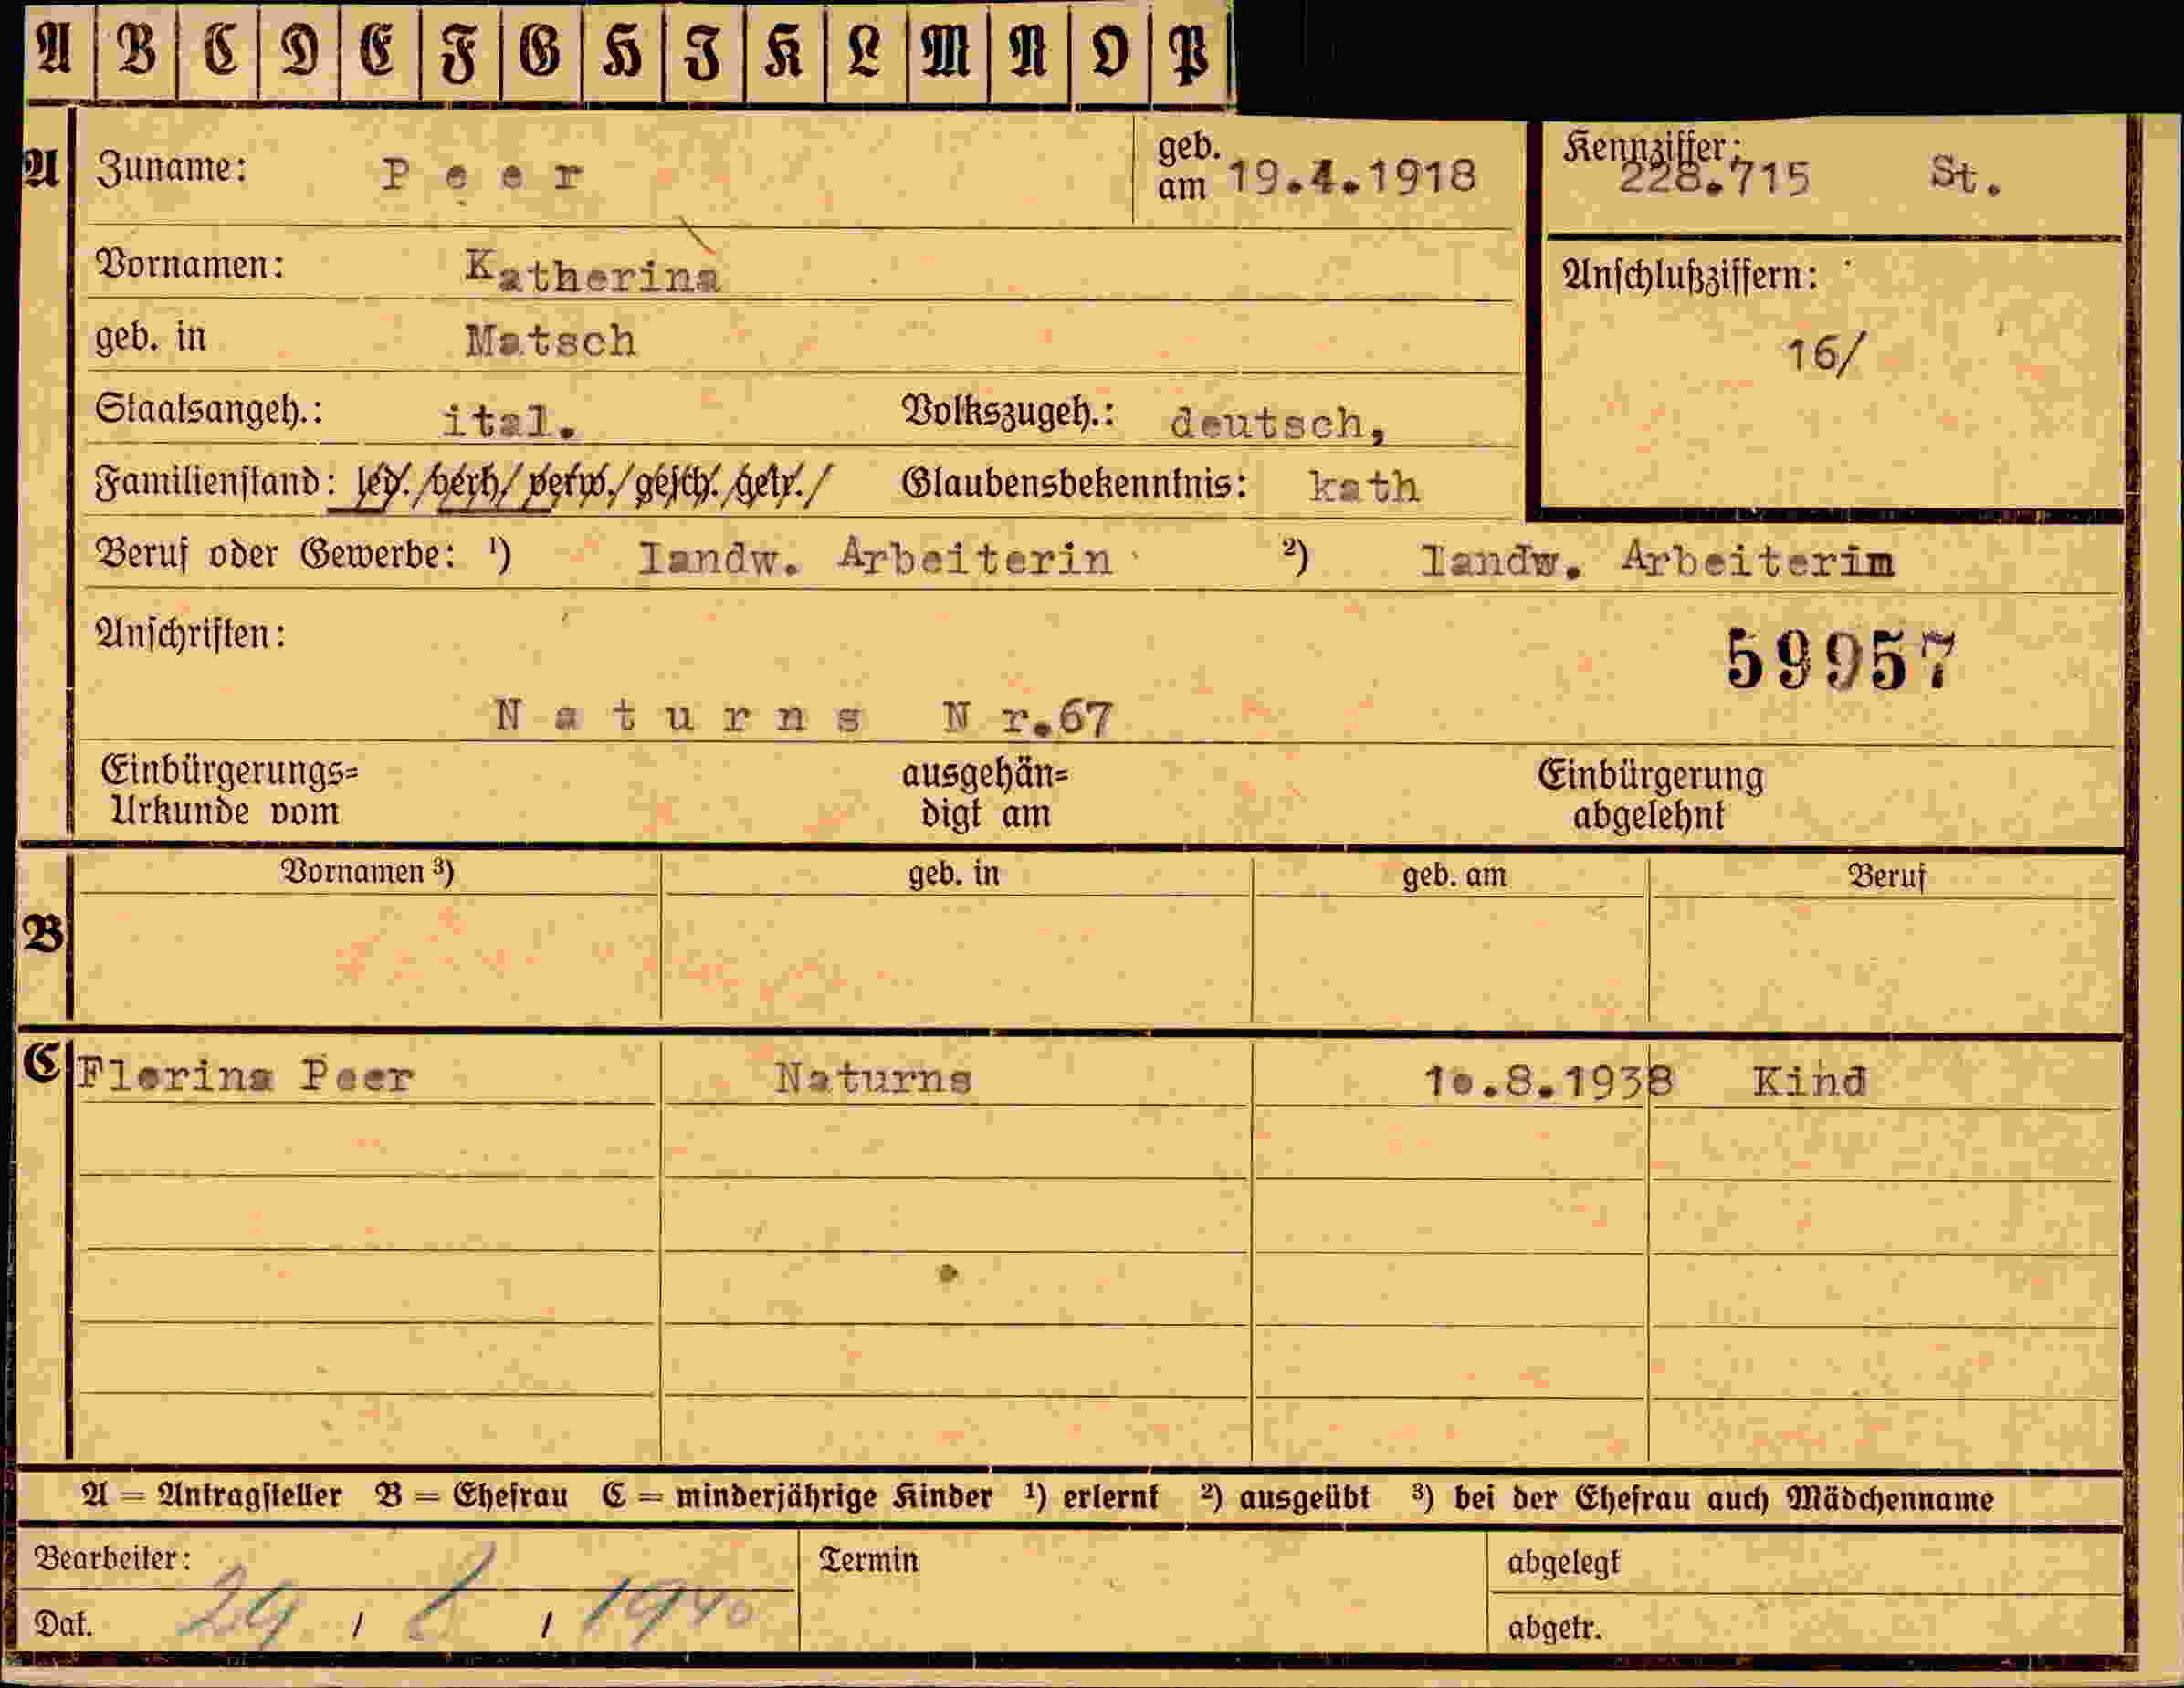 A B C D E F G H I K L M N O P
A Zuname: Peer geb. am 19.4.1918 Kennziffer: 228.715 St.
Vornamen: Katherina Anschlußziffern:
geb. in Matsch 16/
Staatsangeh.: ital. Volkszugeh.: deutsch,
Familienstand: led./verh/verw./gesch./getr./ Glaubensbekenntnis: kath
Beruf oder Gewerbe: ¹) landw. Arbeiterin ²) landw. Arbeiterin
Anschriften: 59957
Naturns Nr.67
Einbürgerungs= ausgehän= Einbürgerung
Urkunde vom digt am abgelehnt
Vornamen ³) geb. in geb. am Beruf
B
C Florina Peer Naturns 10.8.1938 Kind
A = Antragsteller B = Ehefrau C = minderjährige Kinder ¹) erlernt ²) ausgeübt ³) bei der Ehefrau auch Mädchenname
Bearbeiter: Termin abgelegt
Dat. 29 / 8 / 1940 abgetr.